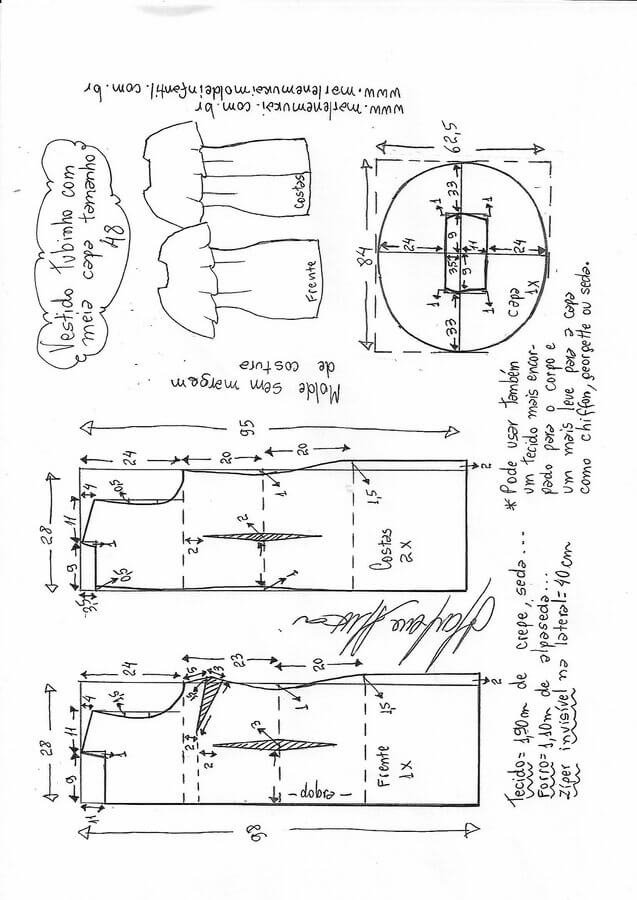 www.marlenemukai.com.br
www.marlenemukaimoldeinfantil.com.br
Vestido Tubinho com
meia capa tamanho
48
Costas
Frente
Molde sem margem
de costura
62,5
84
33
1
1
9
24
11
24
35
9
1
1
33
capa
1x
* Pode usar também
um tecido mais encor-
pado para o corpo e
um mais leve para a capa
como chiffon, georgette ou seda.
95
24
20
20
4
0,5
11
28
1
9
3,5
0,5
2
2
1
1
1,5
2
Costas
2x
98
24
23
20
4
0,5
11
28
1
9
11
1,5
3
1,5
2
2
3
1
1,5
2
Frente
1x
-dobra-
Tecido= 1,90m de crepe, seda...
Forro= 1,10m de alpaseda...
Zíper invisível na lateral= 40cm